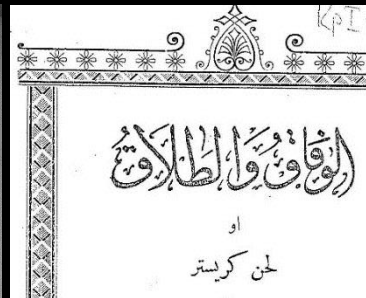 KpI
الوِفَاقُ وَالطَّلَاقُ
او
لحن كريستر